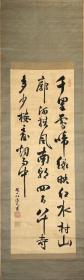 千里鶯啼綠映紅水村山
郭酒旗風南朝四百八十寺
多少樓臺煙雨中